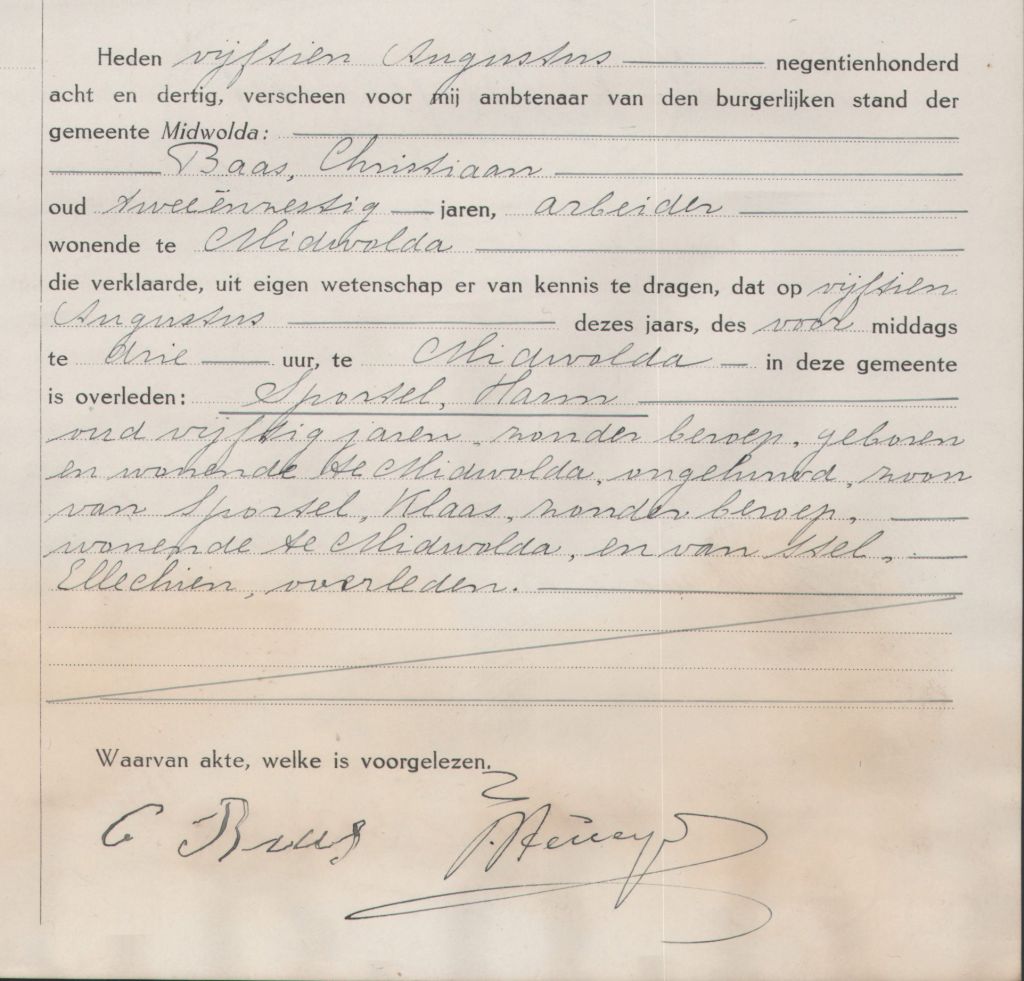 Heden vijftien Augustus negentienhonderd
acht en dertig, verscheen voor mij ambtenaar van den burgerlijken stand der
gemeente Midwolda:
Baas, Christiaan
oud tweeënzestig jaren, arbeider
wonende te Midwolda
die verklaarde, uit eigen wetenschap er van kennis te dragen, dat op vijftien
Augustus dezes jaars, des voor middags
te drie uur, te Midwolda in deze gemeente
is overleden: Sportel, Harm
oud vijftig jaren, zonder beroep, geboren
en wonende te Midwolda, ongehuwd, zoon
van Sportel, Klaas, zonder beroep,
wonende te Midwolda, en van Stel,
Ellechien, overleden.
Waarvan akte, welke is voorgelezen.
C Baas